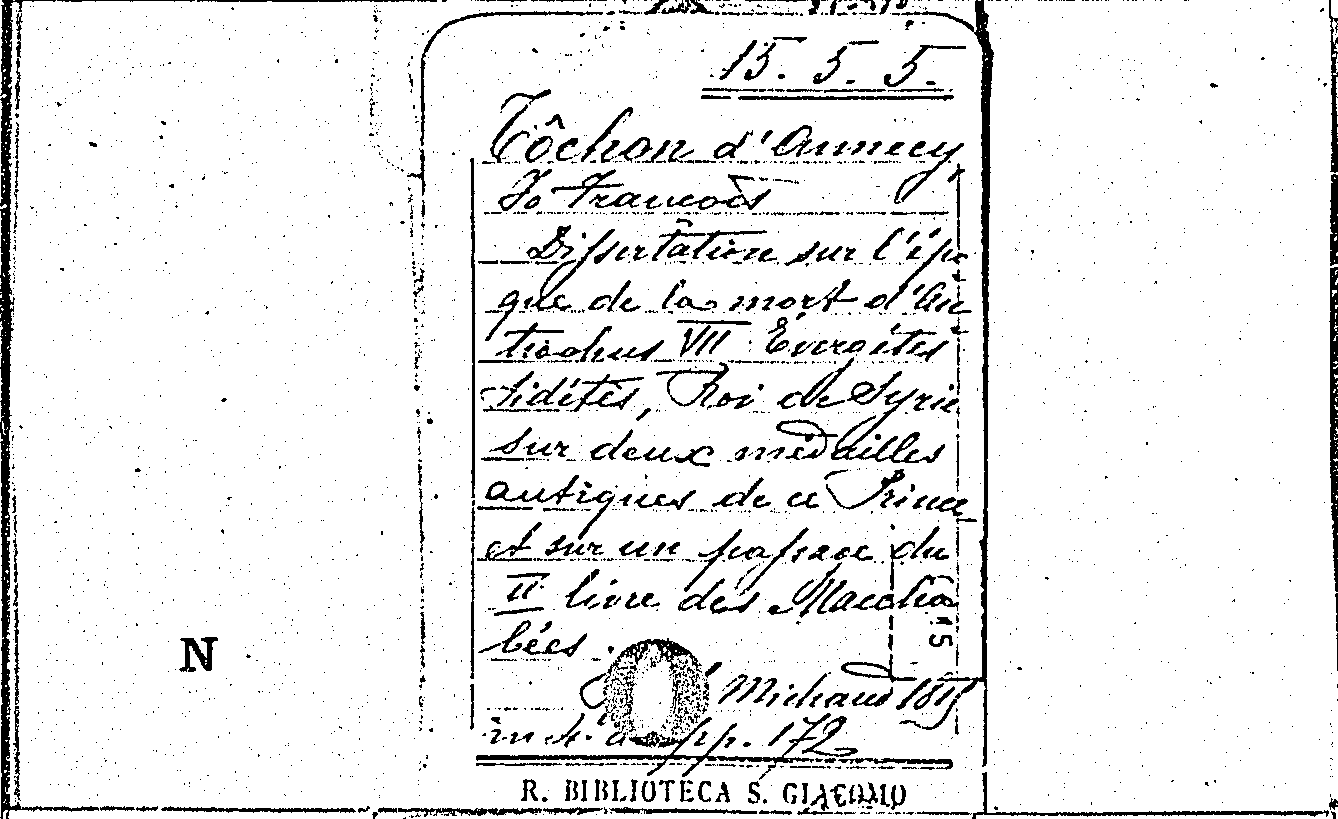 15. 5. 5.
Tôchon d'Annecy,
Jo François
Dissertation sur l'épo
que de la mort d'An
tiochus VII Évergétès
Sidétès, Roi de Syrie
sur deux médailles
antiques de ce Prince
et sur un passage du
II livre des Maccha
bées.
Michaud 1815
in 4.° pp. 172
15
N
R. BIBLIOTECA S. GIACOMO